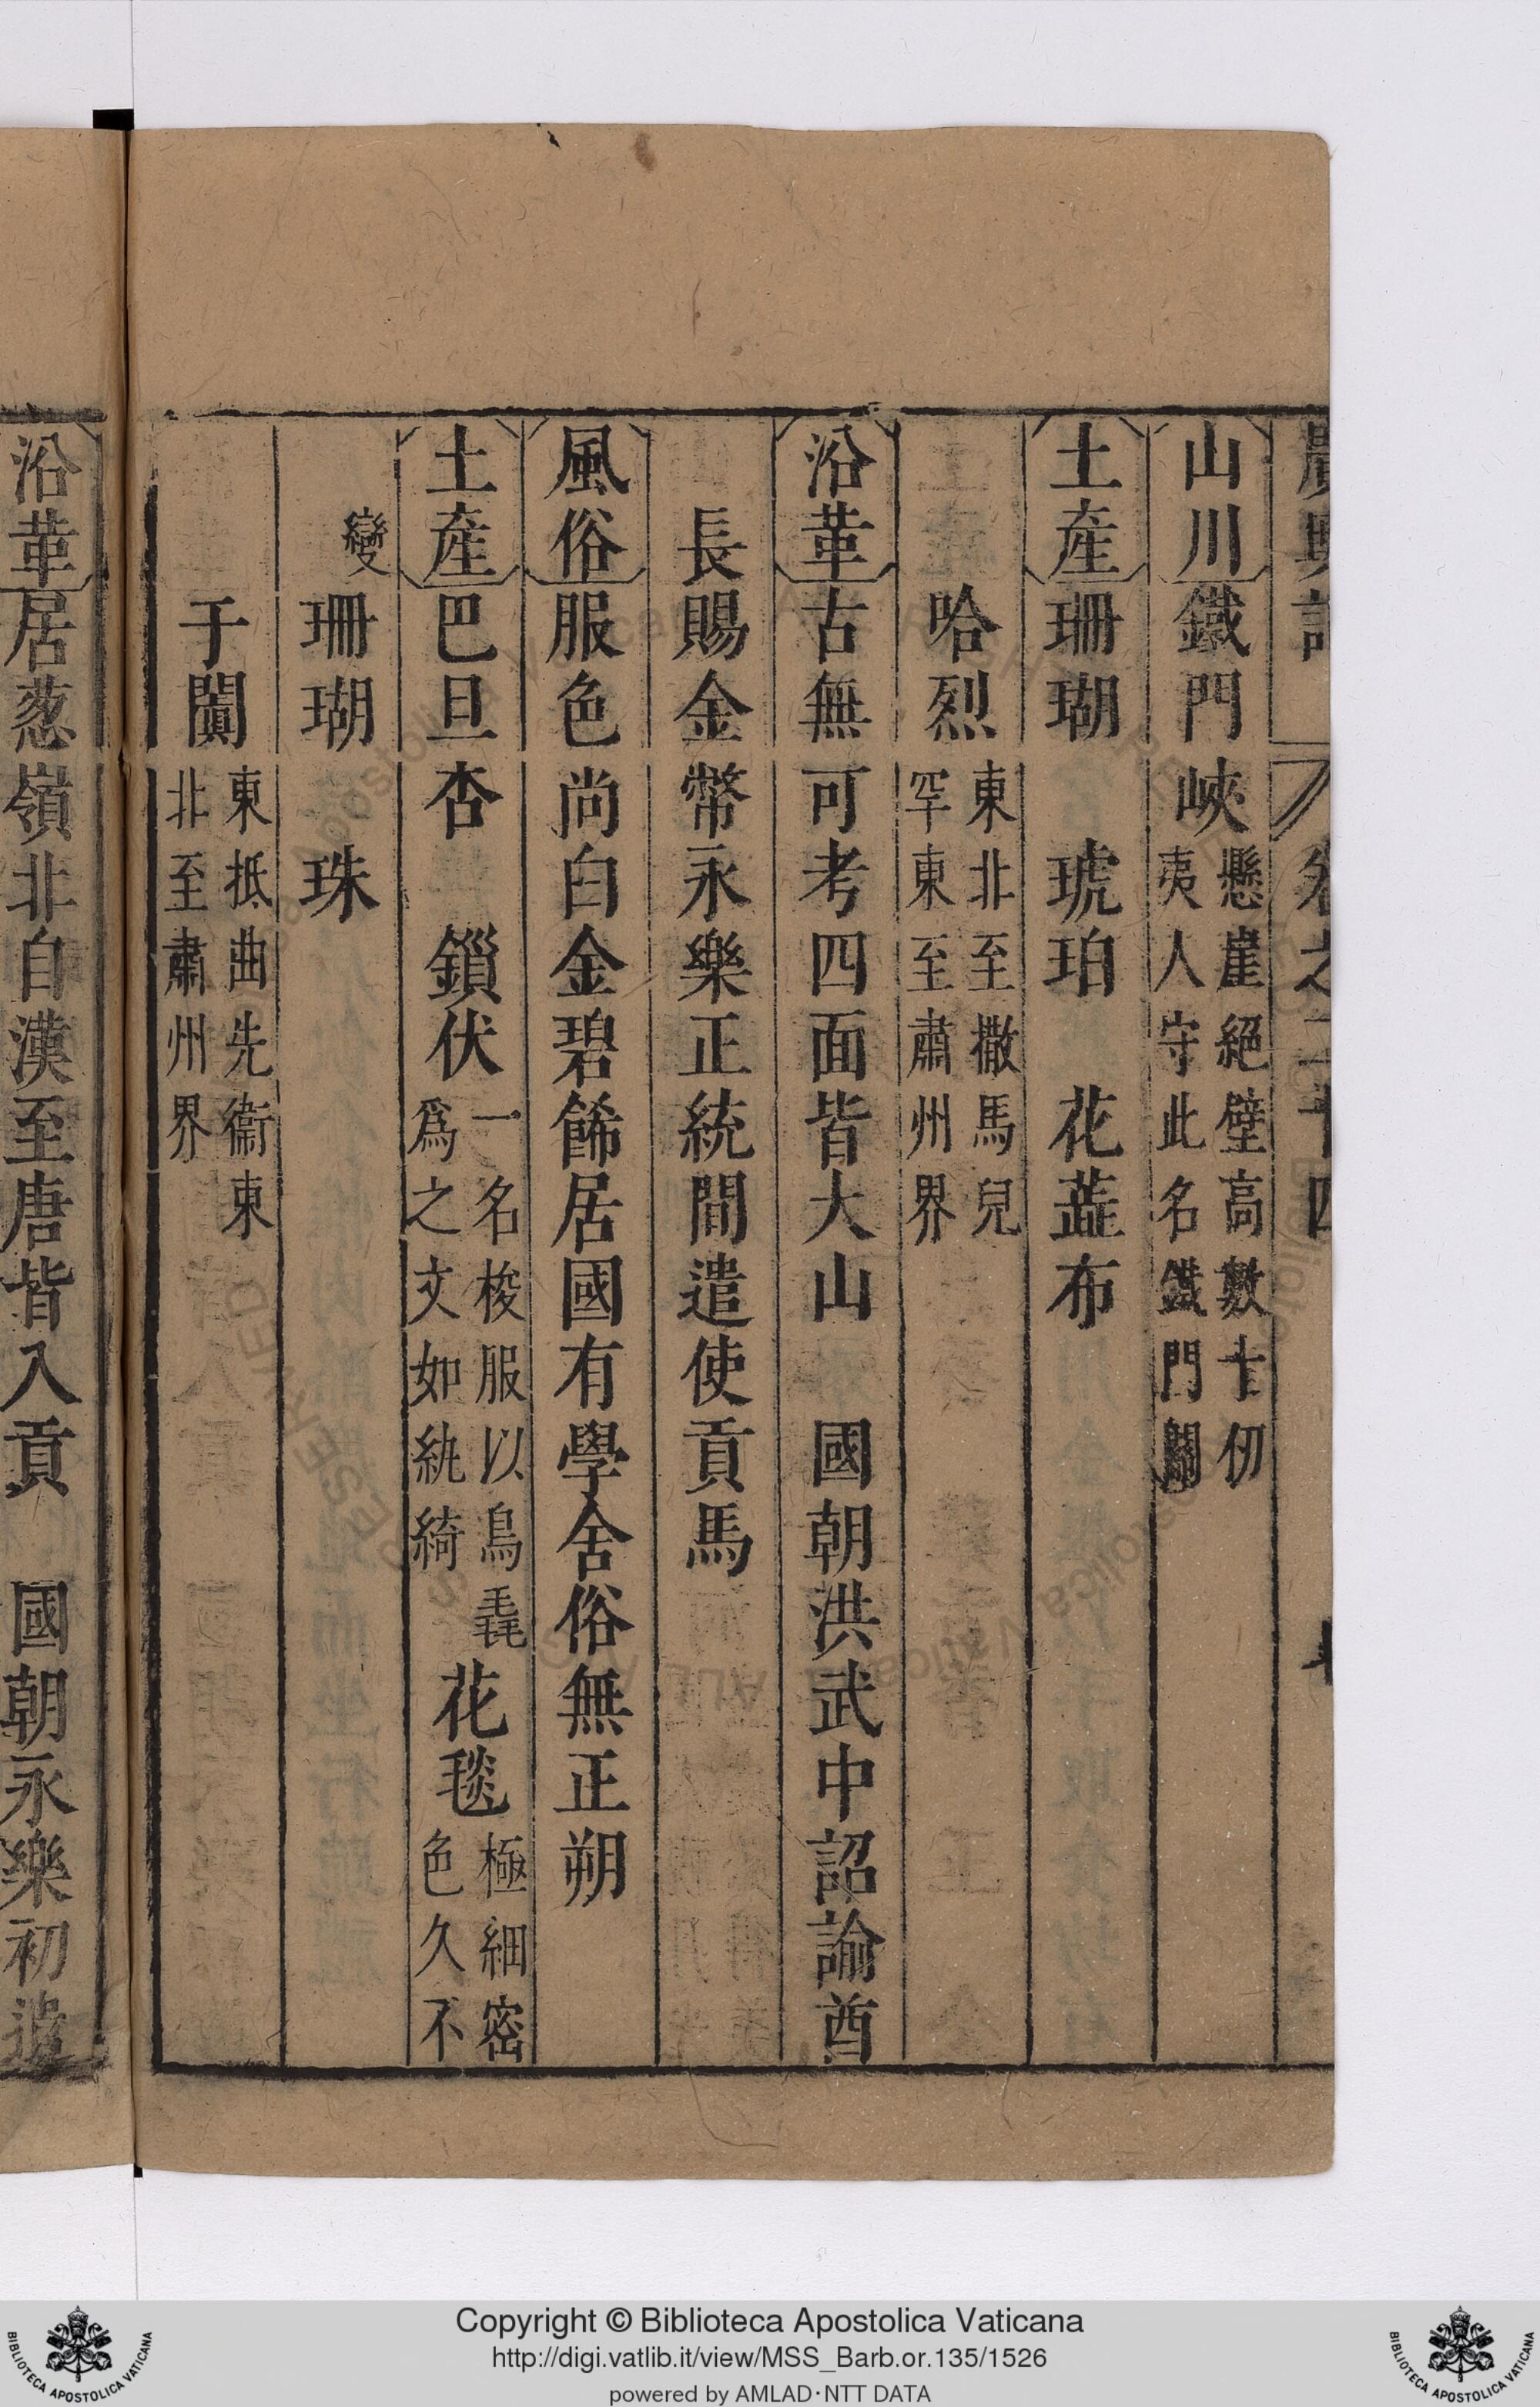 廣輿記 卷之二十四
山川 鐵門峽 懸崖絕壁高數十仞 夷人守此名鐵門關
土產 珊瑚 琥珀 花蕋布
哈烈 東北至撒馬兒 罕東至肅州界
沿革 古無可考四面皆大山 國朝洪武中詔諭酋
長賜金幣永樂正統間遣使貢馬
風俗 服色尚白金碧餙居國有學舍俗無正朔
土產 巴旦杏 鎻伏 一名梭服以鳥毳 爲之文如紈綺 花毯 極細密 色久不
變 珊瑚 珠
于闐 東抵曲先衞東 北至肅州界
沿革 居葱嶺北自漢至唐皆入貢 國朝永樂初遣
Copyright © Biblioteca Apostolica Vaticana
http://digi.vatlib.it/view/MSS_Barb.or.135/1526
powered by AMLAD·NTT DATA
BIBLIOTECA APOSTOLICA VATICANA
BIBLIOTECA APOSTOLICA VATICANA